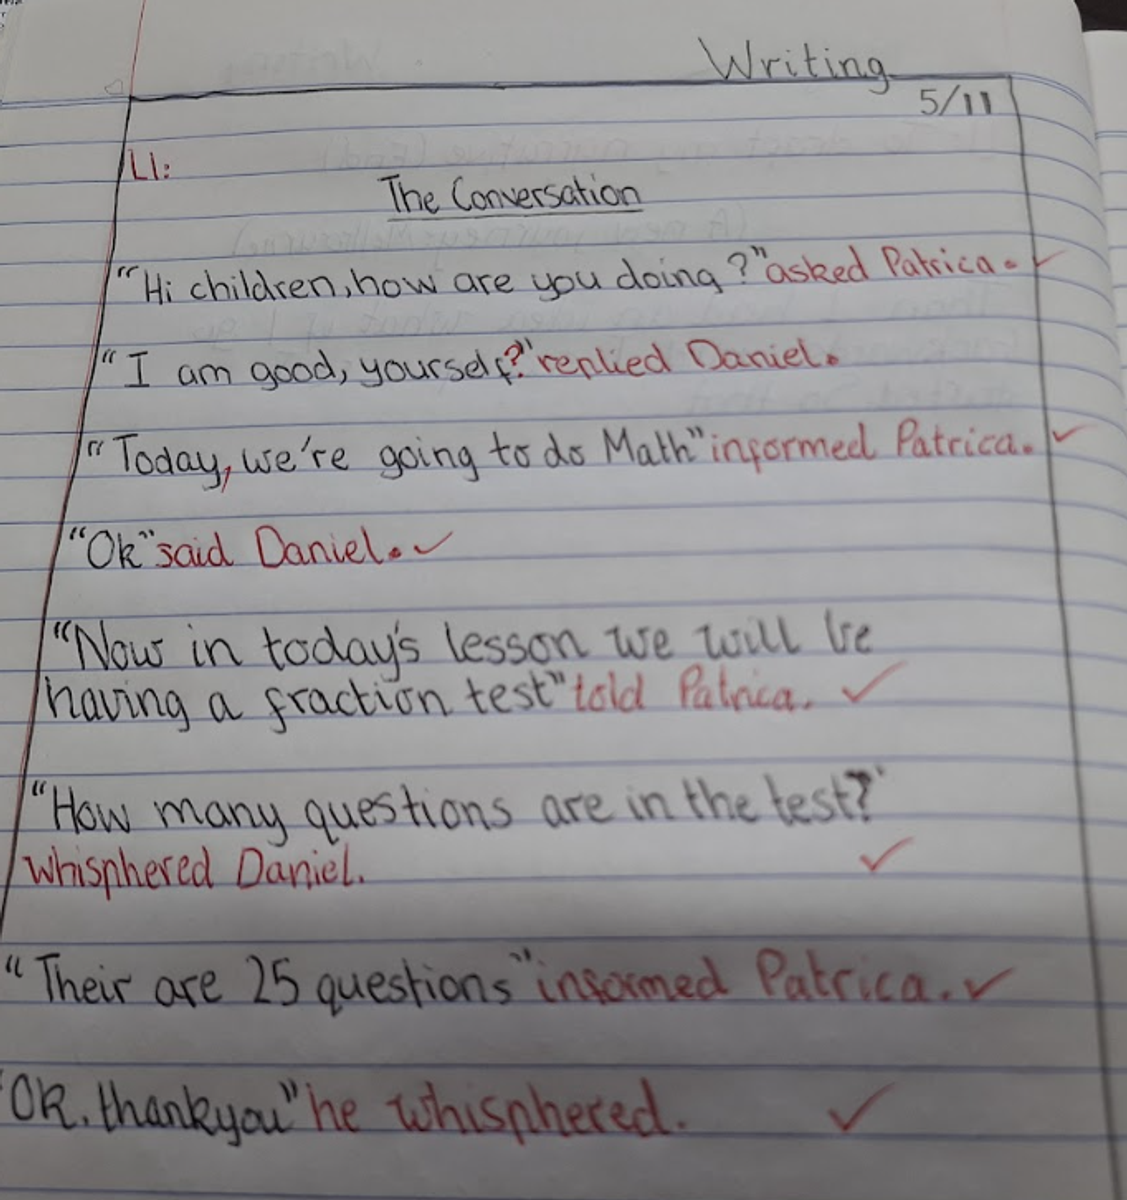 Writing
5/11
LI:
The Conversation
"Hi children, how are you doing?" asked Patrica.
"I am good, yourself?" replied Daniel.
"Today, we're going to do Math" informed Patrica.
"Ok" said Daniel.
"Now in today's lesson we will be
having a fraction test" told Patrica.
"How many questions are in the test?"
whisphered Daniel.
"Their are 25 questions" informed Patrica.
"Ok. thankyou" he whisphered.